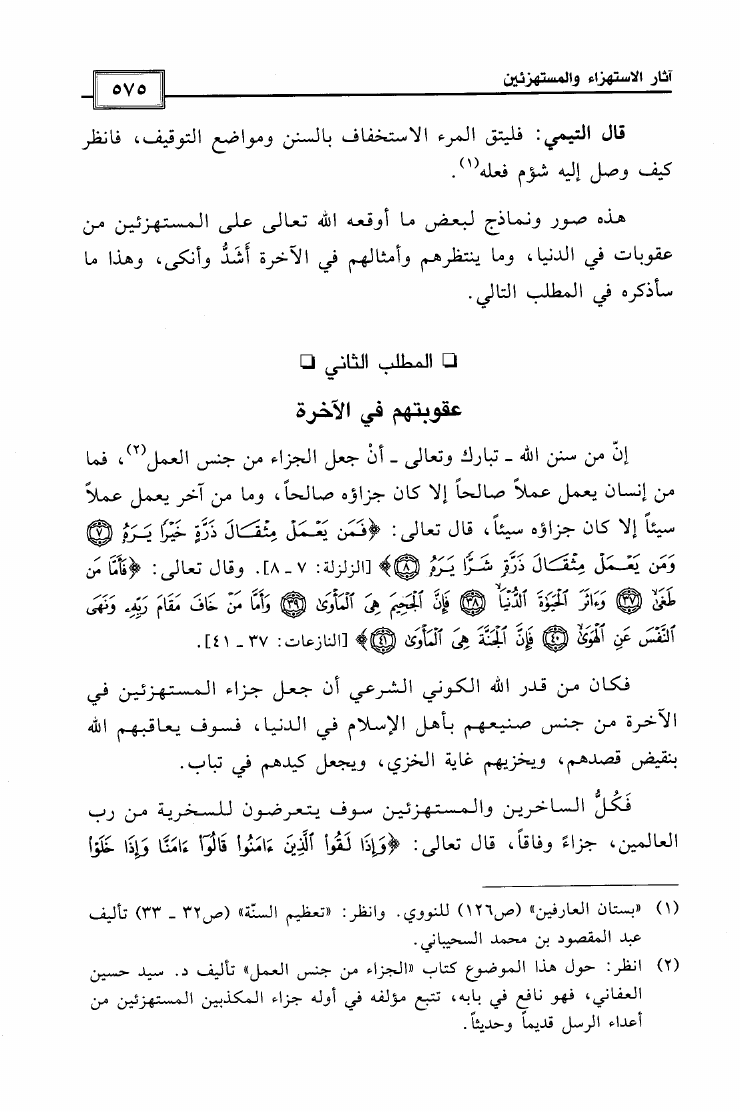 آثار الاستهزاء والمستهزئين
٥٧٥
قال التيمي: فليتق المرء الاستخفاف بالسنن ومواضع التوقيف، فانظر
كيف وصل إليه شؤم فعله(١).
هذه صور ونماذج لبعض ما أوقعه الله تعالى على المستهزئين من
عقوبات في الدنيا، وما ينتظرهم وأمثالهم في الآخرة أَشَدُّ وأنكى، وهذا ما
سأذكره في المطلب التالي.
❏ المطلب الثاني ❏
عقوبتهم في الآخرة
إنّ من سنن الله ـ تبارك وتعالى ـ أنْ جعل الجزاء من جنس العمل(٢)، فما
من إنسان يعمل عملاً صالحاً إلا كان جزاؤه صالحاً، وما من آخر يعمل عملاً
سيئاً إلا كان جزاؤه سيئاً، قال تعالى: ﴿فَمَن يَعْمَلْ مِثْقَالَ ذَرَّةٍ خَيْرًا يَرَهُ ۝٧
وَمَن يَعْمَلْ مِثْقَالَ ذَرَّةٍ شَرًّا يَرَهُ ۝٨﴾ [الزلزلة: ٧ ـ ٨]. وقال تعالى: ﴿فَأَمَّا مَن
طَغَىٰ ۝٣٧ وَءَاثَرَ ٱلْحَيَوٰةَ ٱلدُّنْيَا ۝٣٨ فَإِنَّ ٱلْجَحِيمَ هِىَ ٱلْمَأْوَىٰ ۝٣٩ وَأَمَّا مَنْ خَافَ مَقَامَ رَبِّهِۦ وَنَهَى
ٱلنَّفْسَ عَنِ ٱلْهَوَىٰ ۝٤٠ فَإِنَّ ٱلْجَنَّةَ هِىَ ٱلْمَأْوَىٰ ۝٤١﴾ [النازعات: ٣٧ ـ ٤١].
فكان من قدر الله الكوني الشرعي أن جعل جزاء المستهزئين في
الآخرة من جنس صنيعهم بأهل الإسلام في الدنيا، فسوف يعاقبهم الله
بنقيض قصدهم، ويخزيهم غاية الخزي، ويجعل كيدهم في تباب.
فَكُلُّ الساخرين والمستهزئين سوف يتعرضون للسخرية من رب
العالمين، جزاءً وفاقاً، قال تعالى: ﴿وَإِذَا لَقُوا۟ ٱلَّذِينَ ءَامَنُوا۟ قَالُوٓا۟ ءَامَنَّا وَإِذَا خَلَوْا۟
(١) «بستان العارفين» (ص١٢٦) للنووي. وانظر: «تعظيم السنّة» (ص٣٢ ـ ٣٣) تأليف
عبد المقصود بن محمد السحيباني.
(٢) انظر: حول هذا الموضوع كتاب «الجزاء من جنس العمل» تأليف د. سيد حسين
العفاني، فهو نافع في بابه، تتبع مؤلفه في أوله جزاء المكذبين المستهزئين من
أعداء الرسل قديماً وحديثاً.